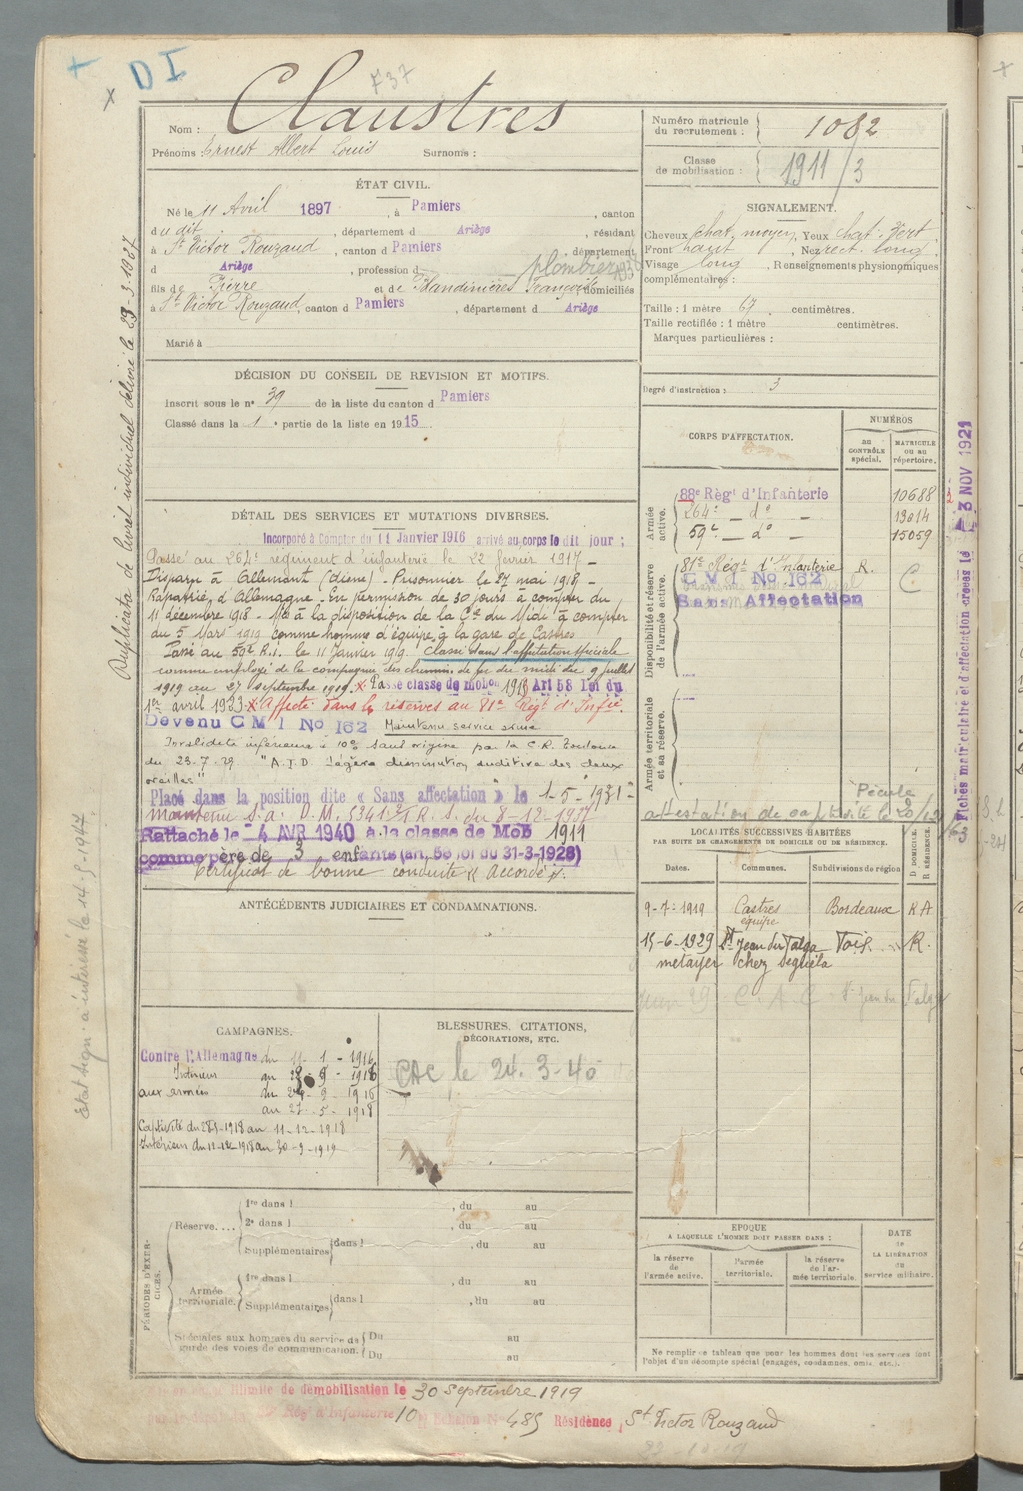 + D I
x
737
Nom : Claustres
Prénoms : Ernest Albert Louis Surnoms :
Numéro matricule du recrutement : 1082
Classe de mobilisation : 1911/3
ÉTAT CIVIL.
Né le 11 Avril 1897, à Pamiers, canton
du dit, département d Ariège, résidant
à St Victor Rouzaud, canton d Pamiers, département
d Ariège, profession d plombier
fils de Pierre et de Blandinières Françoise, domiciliés
à St Victor Rouzaud, canton d Pamiers, département d Ariège
Marié à
SIGNALEMENT.
Cheveux chat. moyen, Yeux chat. vert.
Front haut, Nez rect. long.
Visage long, Renseignements physionomiques
complémentaires :
Taille : 1 mètre 67 centimètres.
Taille rectifiée : 1 mètre centimètres.
Marques particulières :
Degré d'instruction : 3
DÉCISION DU CONSEIL DE REVISION ET MOTIFS.
Inscrit sous le n° 39 de la liste du canton d Pamiers
Classé dans la 1e partie de la liste en 1915.
DÉTAIL DES SERVICES ET MUTATIONS DIVERSES.
Incorporé à Compter du 11 Janvier 1916 arrivé au corps le dit jour ;
Passé au 264e régiment d'infanterie le 22 février 1917 -
Disparu à Allemant (Aisne) - Prisonnier le 27 mai 1918 -
Rapatrié d'Allemagne - En permission de 30 jours à compter du
11 décembre 1918 - Mis à la disposition de la Cie du Midi à compter
du 5 Mars 1919 comme homme d'équipe à la gare de Castres
Passé au 59e R.I. le 11 Janvier 1919. Classé dans l'affectation spéciale
comme employé de la compagnie des chemins de fer du midi du 9 juillet
1919 au 27 septembre 1919. x Passé classe de mobon 1915 Art 58 Loi du
1er avril 1923 x Affecté dans les réserves au 81e Régt d'Infie.
Devenu C M I No 162 Maintenu service armé
Invalidité inférieure à 10% sans origine par la C.R. Toulouse
du 23-7-29. "A.I.D. légère diminution auditive des deux
oreilles"
Placé dans la position dite « Sans affectation » le 1-5-1931 -
maintenu S.A. D.M. 5341 R.S. du 8-12-1937
Rattaché le 4 AVR 1940 à la classe de Mob 1911
comme père de 3 enfants (art. 58 loi du 31-3-1928)
Certificat de bonne conduite "Accordé".
CORPS D'AFFECTATION.
NUMÉROS
au CONTRÔLE spécial.
MATRICULE ou au répertoire.
Armée active.
88e Régt d'Infanterie 10688
264e - do - 13014
59e - do - 15059
Disponibilité et réserve de l'armée active.
81e Régt d'Infanterie R. C
C M I No 162
Sans Affectation
Armée territoriale et sa réserve.
Pécule
attestation de
LOCALITÉS SUCCESSIVES HABITÉES
PAR SUITE DE CHANGEMENTS DE DOMICILE OU DE RÉSIDENCE.
Dates. Communes. Subdivisions de région D DOMICILE. R RÉSIDENCE.
9-7-1919 Castres Bordeaux RA
équipe
15-6-1929 St Jean du Falga Foix R.
métayer chez Séguéla
ANTÉCÉDENTS JUDICIAIRES ET CONDAMNATIONS.
CAMPAGNES.
Contre l'Allemagne du 11-1-1916
Intérieur
aux armées
au 27-5-1918
Captivité du 28-5-1918 au 11-12-1918
Intérieur du 12-12-1918 au 30-9-1919
BLESSURES, CITATIONS,
DÉCORATIONS, ETC.
CAC le 24-3-40
PÉRIODES D'EXERCICES.
Réserve....
1re dans l , du au
2e dans l , du au
Supplémentaires dans l , du au
Armée territoriale.
1re dans l , du au
Supplémentaires dans l , du au
Spéciales aux hommes du service de garde des voies de communication. Du au
Du au
EPOQUE
A LAQUELLE L'HOMME DOIT PASSER DANS :
la réserve de l'armée active.
l'armée territoriale.
la réserve de l'armée territoriale.
DATE de LA LIBÉRATION du service militaire.
Ne remplir ce tableau que pour les hommes dont les services font
l'objet d'un décompte spécial (engagés, condamnés, omis, etc.).
illimité de démobilisation le 30 Septembre 1919
Régt d'Infanterie 10 Échelon No 485 Résidence, St Victor Rouzaud
Duplicata de livret individuel délivré le 23-3-1937
Fiches matriculaire et d'affectation créées le 3 NOV 1921